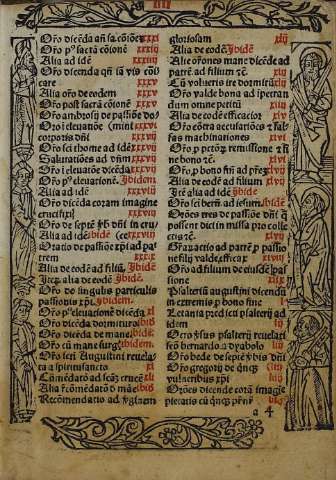 iiij
Oro dicēda añ sacā cōiōnē xxxi
Oro pꝰ sacrā cōionē. xxxiij
Alia ad idē xxxiij
Oro dicenda qñ iā vis cōi
care xxxv
Alia oro de eodem xxxv
Oro post sacrā cōionē. xxxvi
Oro ambrosij de passiōe do-
Oro i eleuatōe (mini xxxvi
corporis dñi xxxvij
Oro sci thome ad idē xxxviij
Salutatiōes ad dñm xxxvij
Oro i eleuatōe dicēda xxxviij
Oro pꝰ eleuationē. Jbidem
Alia ad idē xxxviij
Oro dicenda coram imagine
crucifixi xxxviij
Oro de septē ꝟbis dñi in cru-
Alia ad idē. ibidē (ce xxxviij
Oratio de passiōe xpi ad pa-
trem xxxix
Alia de eodē ad filiū. Jbidē
Jtez alia de eodē Jbidē
Oro de singulis particulis
passionis xpi. ibidem.
Oro pꝰ eleuationē dicēda xl
Oro dicēda dormituro ibidē
Oro dicēda de mane. ibidē
Oro cū mane surgis ibidem
Oro sci Augustini reuela-
ta a spiritusancto xl
Cōmēdatō ad scāz crucē xli
Alia cōmēdatō d māe ibid
Recomendatio ad ꝟginem
gloriosam xlij
Alia de eodē Jbidē
Alia orōnes mane dicēde ad
patrē ad filium zē. xliij
Cū volueris ire dormitū xliij
Oro valde bona ad ipetran
dum omne petitū xliij
Alia de eodē efficacior xlv
Oro cōtra accusatiōes z fal-
sas machinationes xlvi
Oro pro pctōꝝ remissione z fi
ne bono zē. xlvi
Oro p bono fini ad p̄rez xlvi
Alia de eodē ad filium xlvi
Jtē alia ad idē Jbidē
Oro sci berñ. ad iesum. ibidē
Orōnes tres de passiōe dñi q̄
possent dici in missa pro colle
ctis zē. xlviij
Grās actio ad patrē p passio
ne filij valde efficax xlviij
Oro ad filium de eiusdē pas
sione xlix
Psalteriū augustini dicēndū
in extremis p bono fine l
Letania p̄dicti psalterij lij
Octo ꝟsus psalterij reuelati
sctō bernardo a dyabolo lij
Oro bede de septē ꝟbis dñi
Oro gregorij de qnqꝫ liij
vulneribus xpi liij
Orōnes dicende corā imagie
pietatis cū qnqꝫ p̄ni
a 4